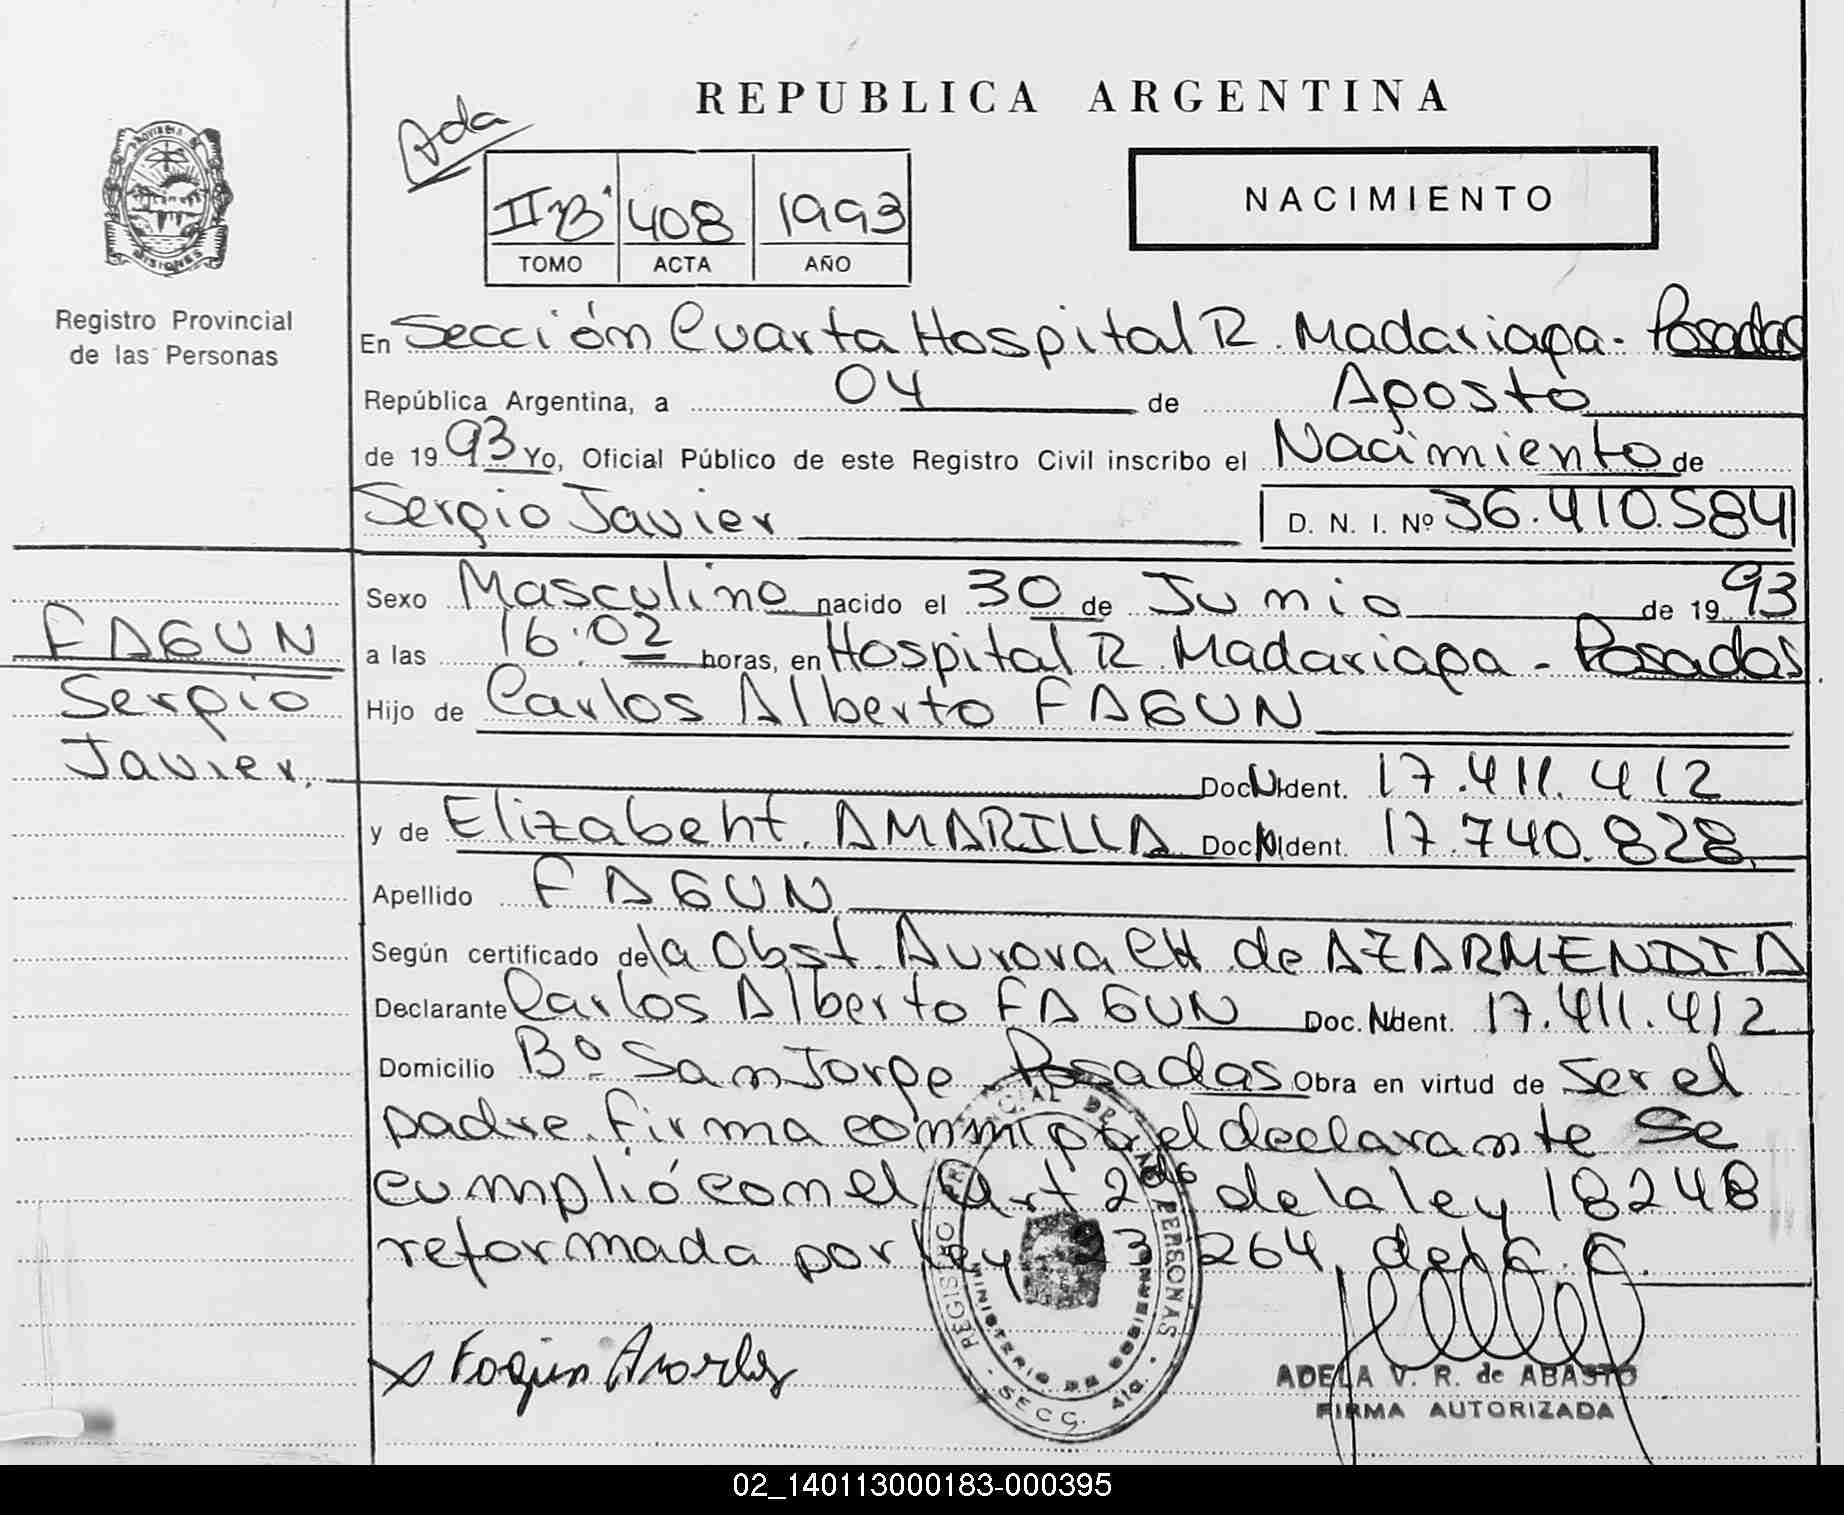 REPUBLICA ARGENTINA
Ada
II B 408 1993
TOMO ACTA AÑO
NACIMIENTO
PROVINCIA DE
MISIONES
Registro Provincial
de las Personas
En Sección Cuarta Hospital R. Madariaga - Posadas
República Argentina, a 04 de Agosto
de 1993 Yo, Oficial Público de este Registro Civil inscribo el Nacimiento de
Sergio Javier D. N. I. Nº 36.410.584
Sexo Masculino nacido el 30 de Junio de 1993
FAGUN
a las 16:02 horas, en Hospital R. Madariaga - Posadas
Sergio
Hijo de Carlos Alberto FAGUN
Javier.
Doc. N Ident. 17.411.412
y de Elizabeht. AMARILLA Doc. N Ident. 17.740.828
Apellido FAGUN
Según certificado de la Obst. Aurora CH. de AZARMENDIA
Declarante Carlos Alberto FAGUN Doc. N Ident. 17.411.412
Domicilio Bº San Jorge. Posadas Obra en virtud de Ser el
padre. firma conmigo el declarante Se
cumplió con el Art 2do de la ley 18248
reformada por ley 23264. del C. C.
REGISTRO PROVINCIAL DE LAS PERSONAS
MINISTERIO DE GOBIERNO
SECC. 4ta.
ADELA V. R. de ABASTO
FIRMA AUTORIZADA
02_140113000183-000395